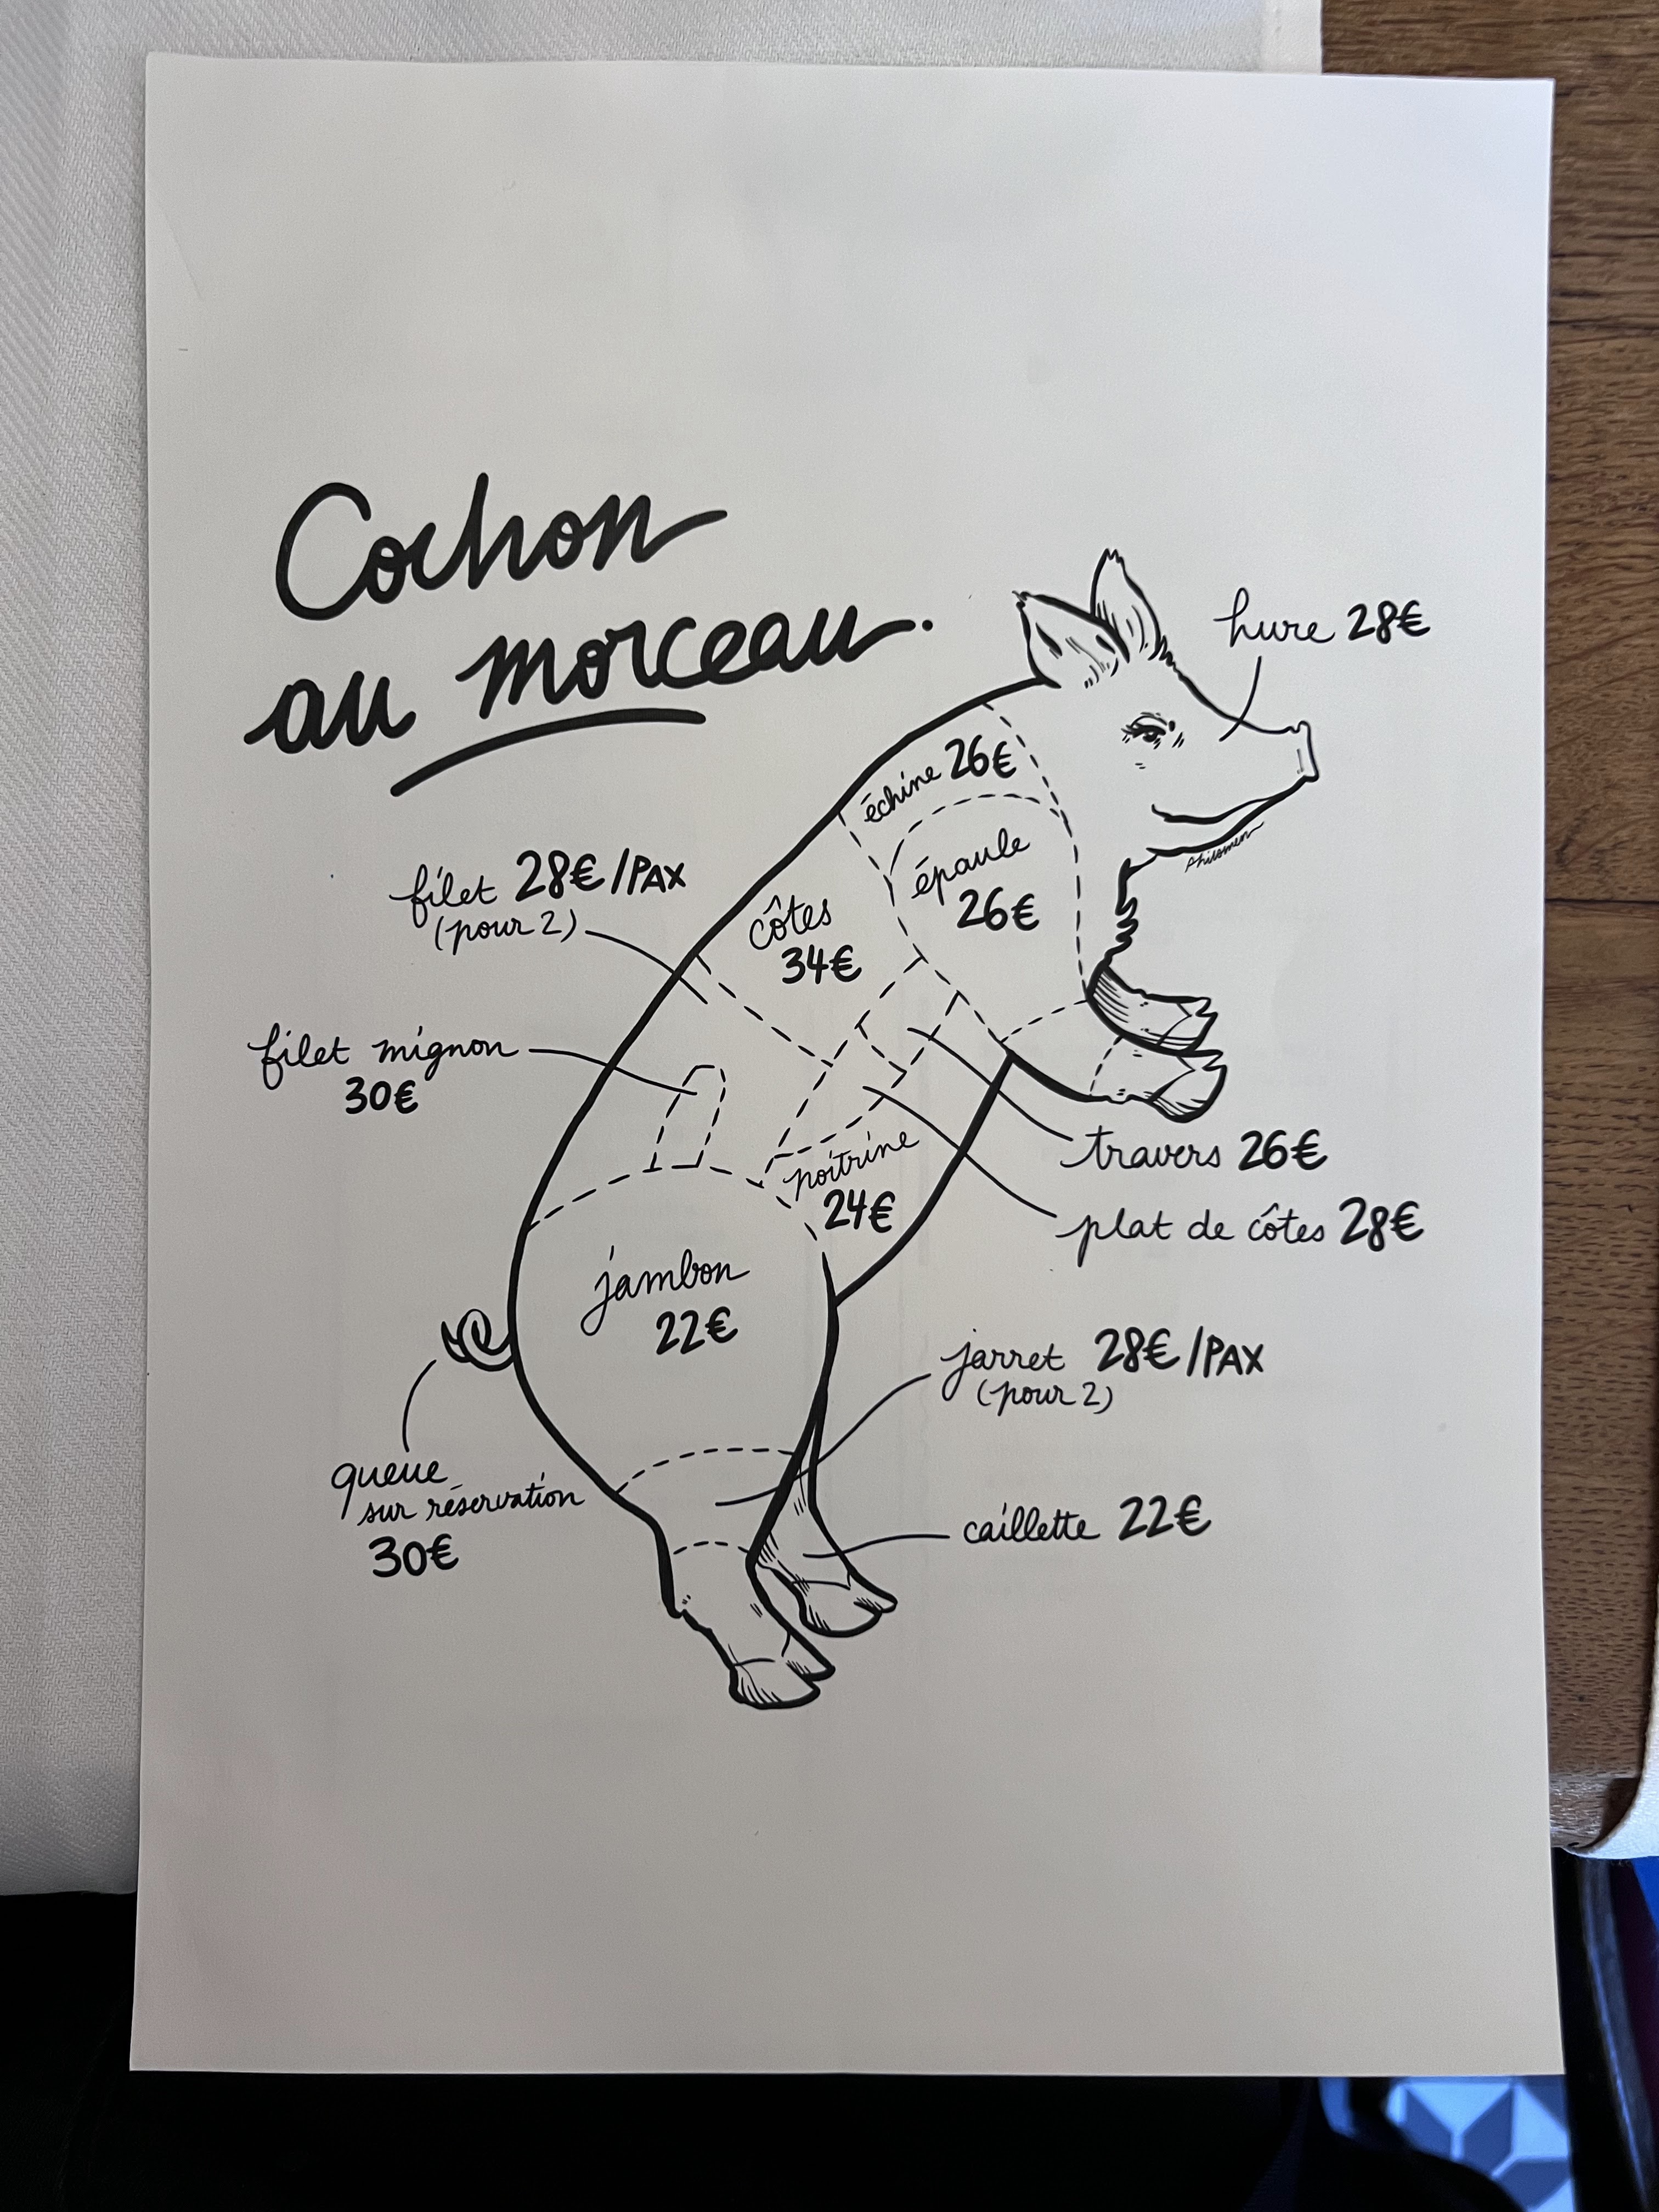 Cochon
au morceau.
hure 28€
échine 26€
épaule
26€
filet 28€/PAX
(pour 2)
côtes
34€
filet mignon
30€
travers 26€
poitrine
24€
plat de côtes 28€
jambon
22€
jarret 28€/PAX
(pour 2)
queue
sur réservation
30€
caillette 22€